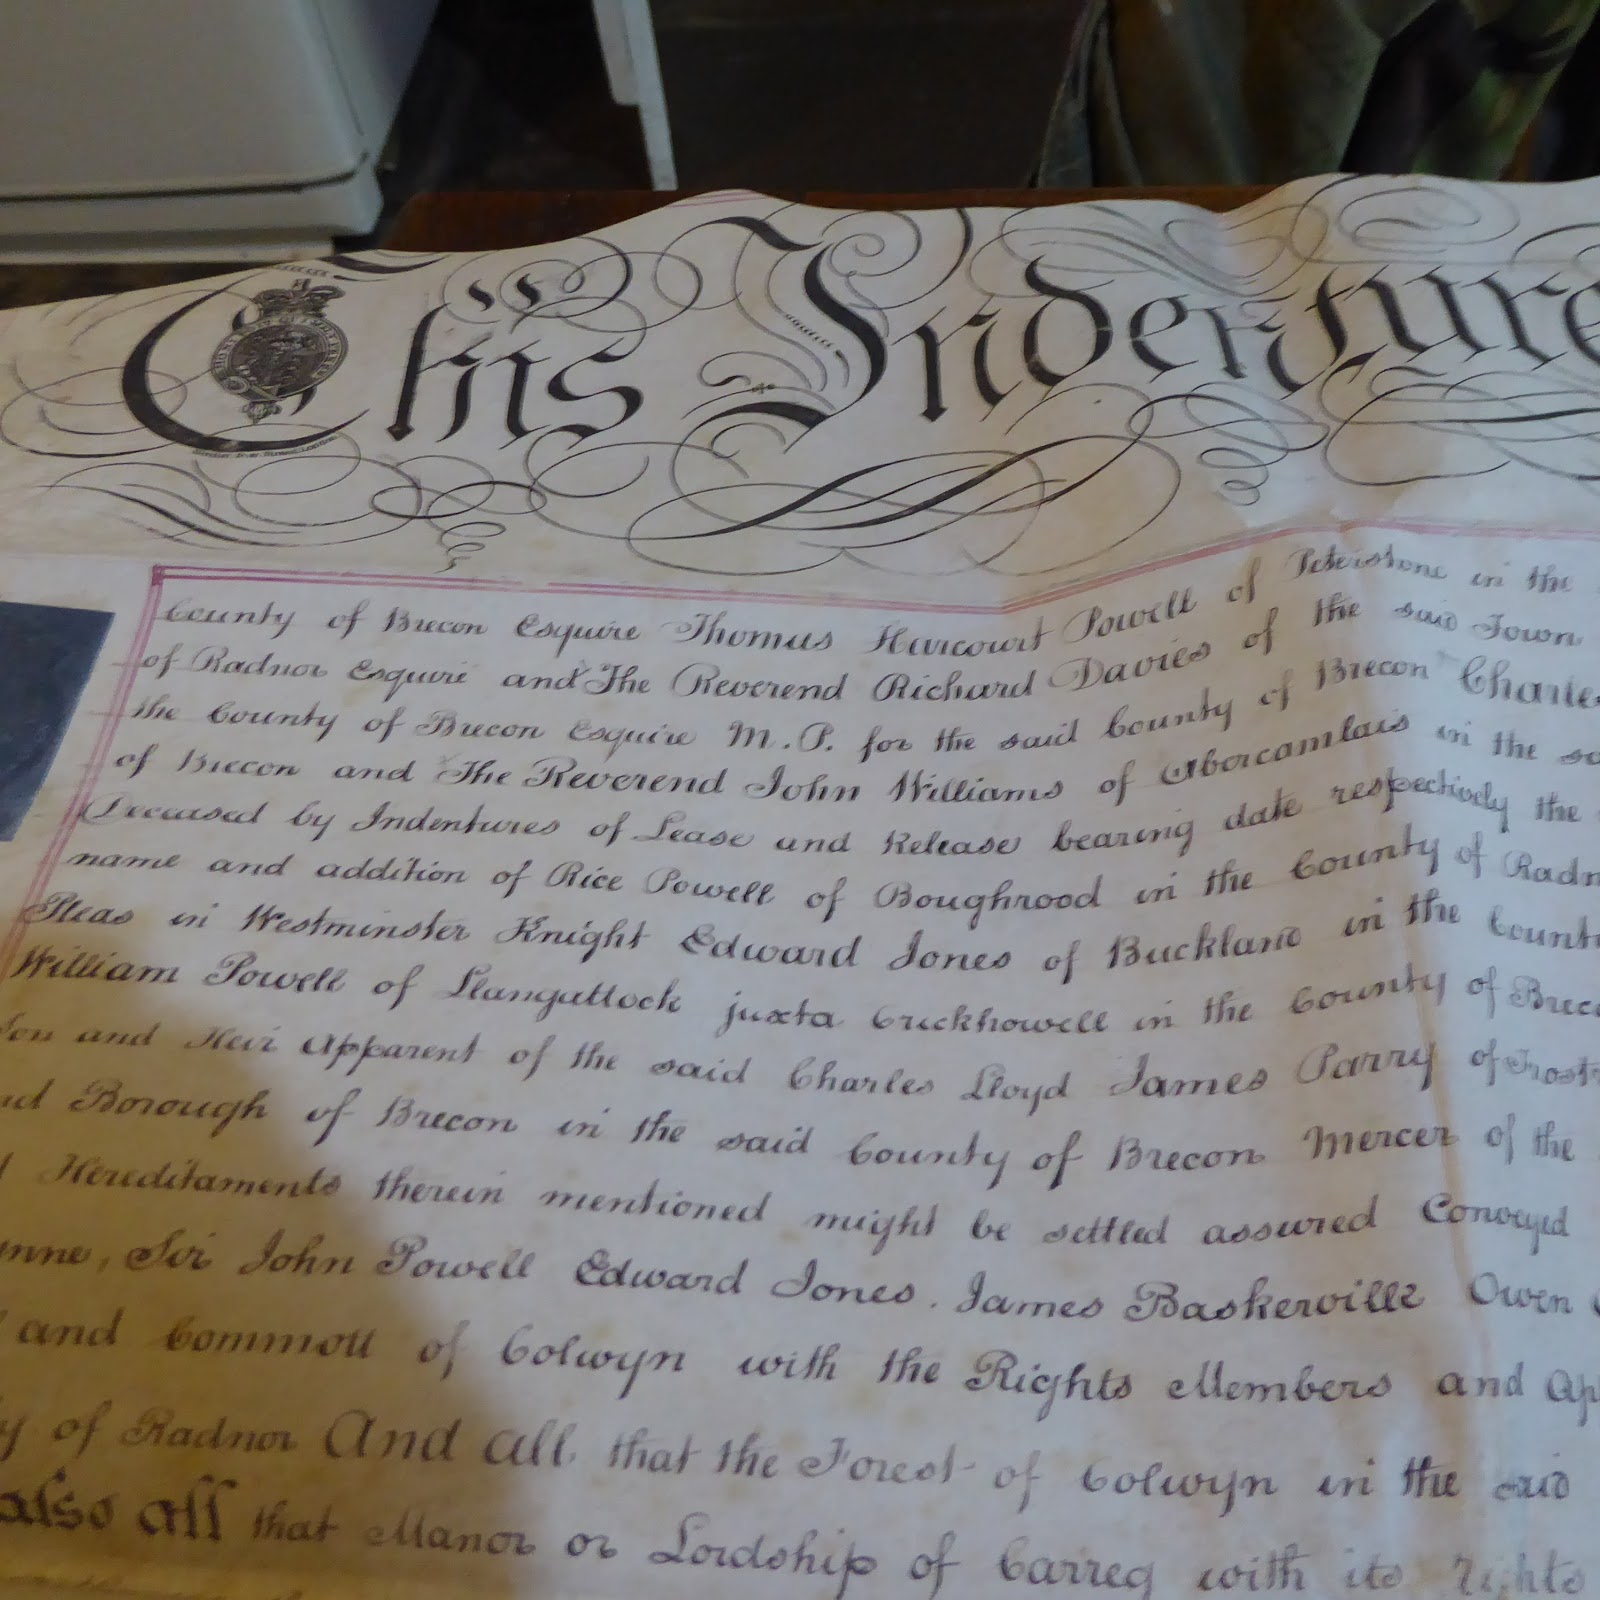 This Indenture
County of Brecon Esquire Thomas Harcourt Powell of Peterstone in the
of Radnor Esquire and The Reverend Richard Davies of the said Town
the County of Brecon Esquire M.P. for the said County of Brecon Charles
of Brecon and The Reverend John Williams of Abercamlais in the
Deceased by Indentures of Lease and Release bearing date respectively the
name and addition of Rice Powell of Boughrood in the County of Radn
Pleas in Westminster Knight Edward Jones of Buckland in the County
William Powell of Llangattock juxta Crickhowell in the County of Brec
Son and Heir Apparent of the said Charles Lloyd James Parry of
Borough of Brecon in the said County of Brecon Mercer of the
Hereditaments therein mentioned might be settled assured Conveyed
Sir John Powell Edward Jones. James Baskerville Owen
and Commott of Colwyn with the Rights Members and Ap
of Radnor And all that the Forest of Colwyn in the said
also all that Manor or Lordship of Carreg with its rights